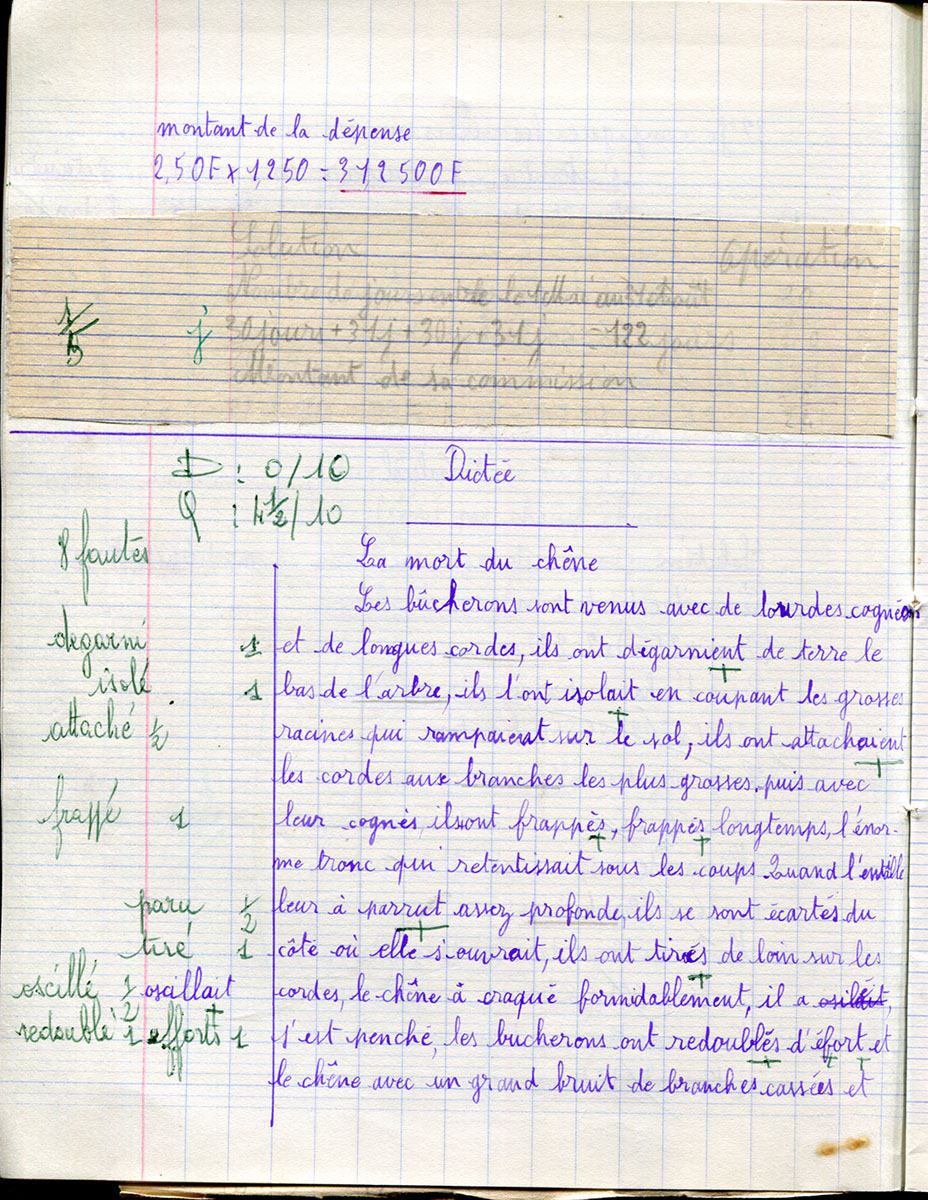 montant de la dépense
2,50F x 1,250 = 312 500F
Solution Opération
Nombre de jours entre le
30 jours + 31j + 30j + 31j = 122 jours
Montant de sa commission
1/2 j
D : 0/10 Dictée
Q : 4 1/2/10
8 fautes
La mort du chêne
Les bûcherons sont venus avec de lourdes cognées
degarni 1 et de longues cordes, ils ont dégarnient de terre le
isolé 1 bas de l'arbre, ils l'ont isolait en coupant les grosses
attaché 1/2 racines qui rampaient sur le sol, ils ont attachaient
les cordes aux branches les plus grosses, puis avec
frappé 1 leur cognès, ils ont frappès, frappès longtemps, l'énor-
me tronc qui retentissait sous les coups Quand l'entaille
paru 1/2 leur à parrut assez profonde, ils se sont écartés du
tiré 1 côté où elle s'ouvrait, ils ont tirés de loin sur les
oscillé 1/2 oscillait cordes, le chêne à craqué formidablement, il a
redoublé 1 efforts 1 s'est penché, les bucherons ont redoublés d'éfort et
le chêne avec un grand bruit de branches cassées et